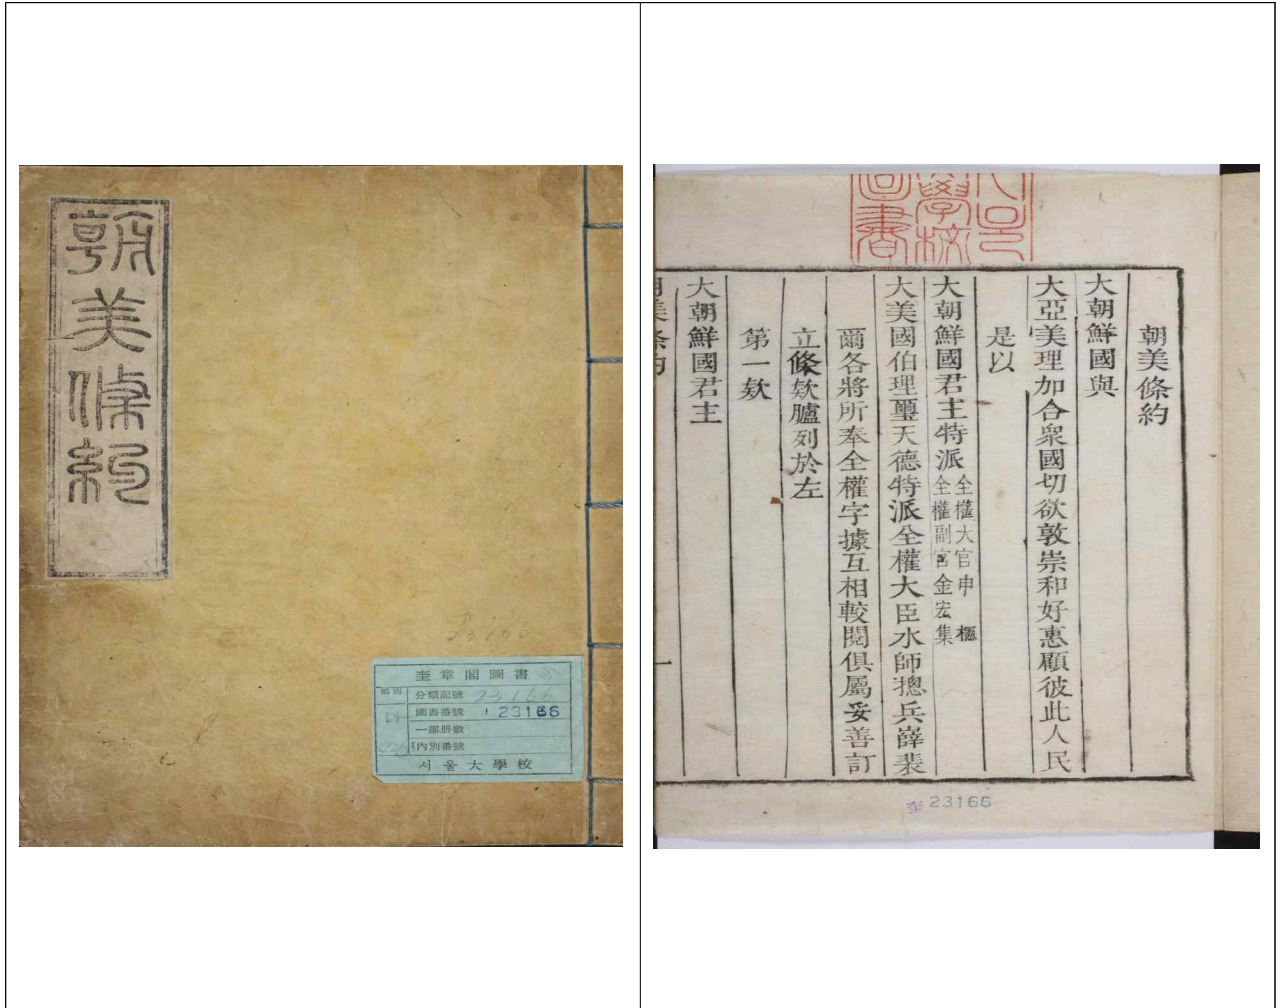 朝美條約
23166
奎章閣圖書
部別
分類記號 23166
圖書番號 23166
一部册數
內別番號
서울大學校
朝美條約
大朝鮮國與
大亞美理加合衆國切欲敦崇和好惠顧彼此人民
是以
大朝鮮國君主特派全權大官申櫶全權副官金宏集
大美國伯理璽天德特派全權大臣水師摠兵薛裴
爾各將所奉全權字據互相較閱俱屬妥善訂
立條欵臚列於左
第一欵
大朝鮮國君主
奎 23166